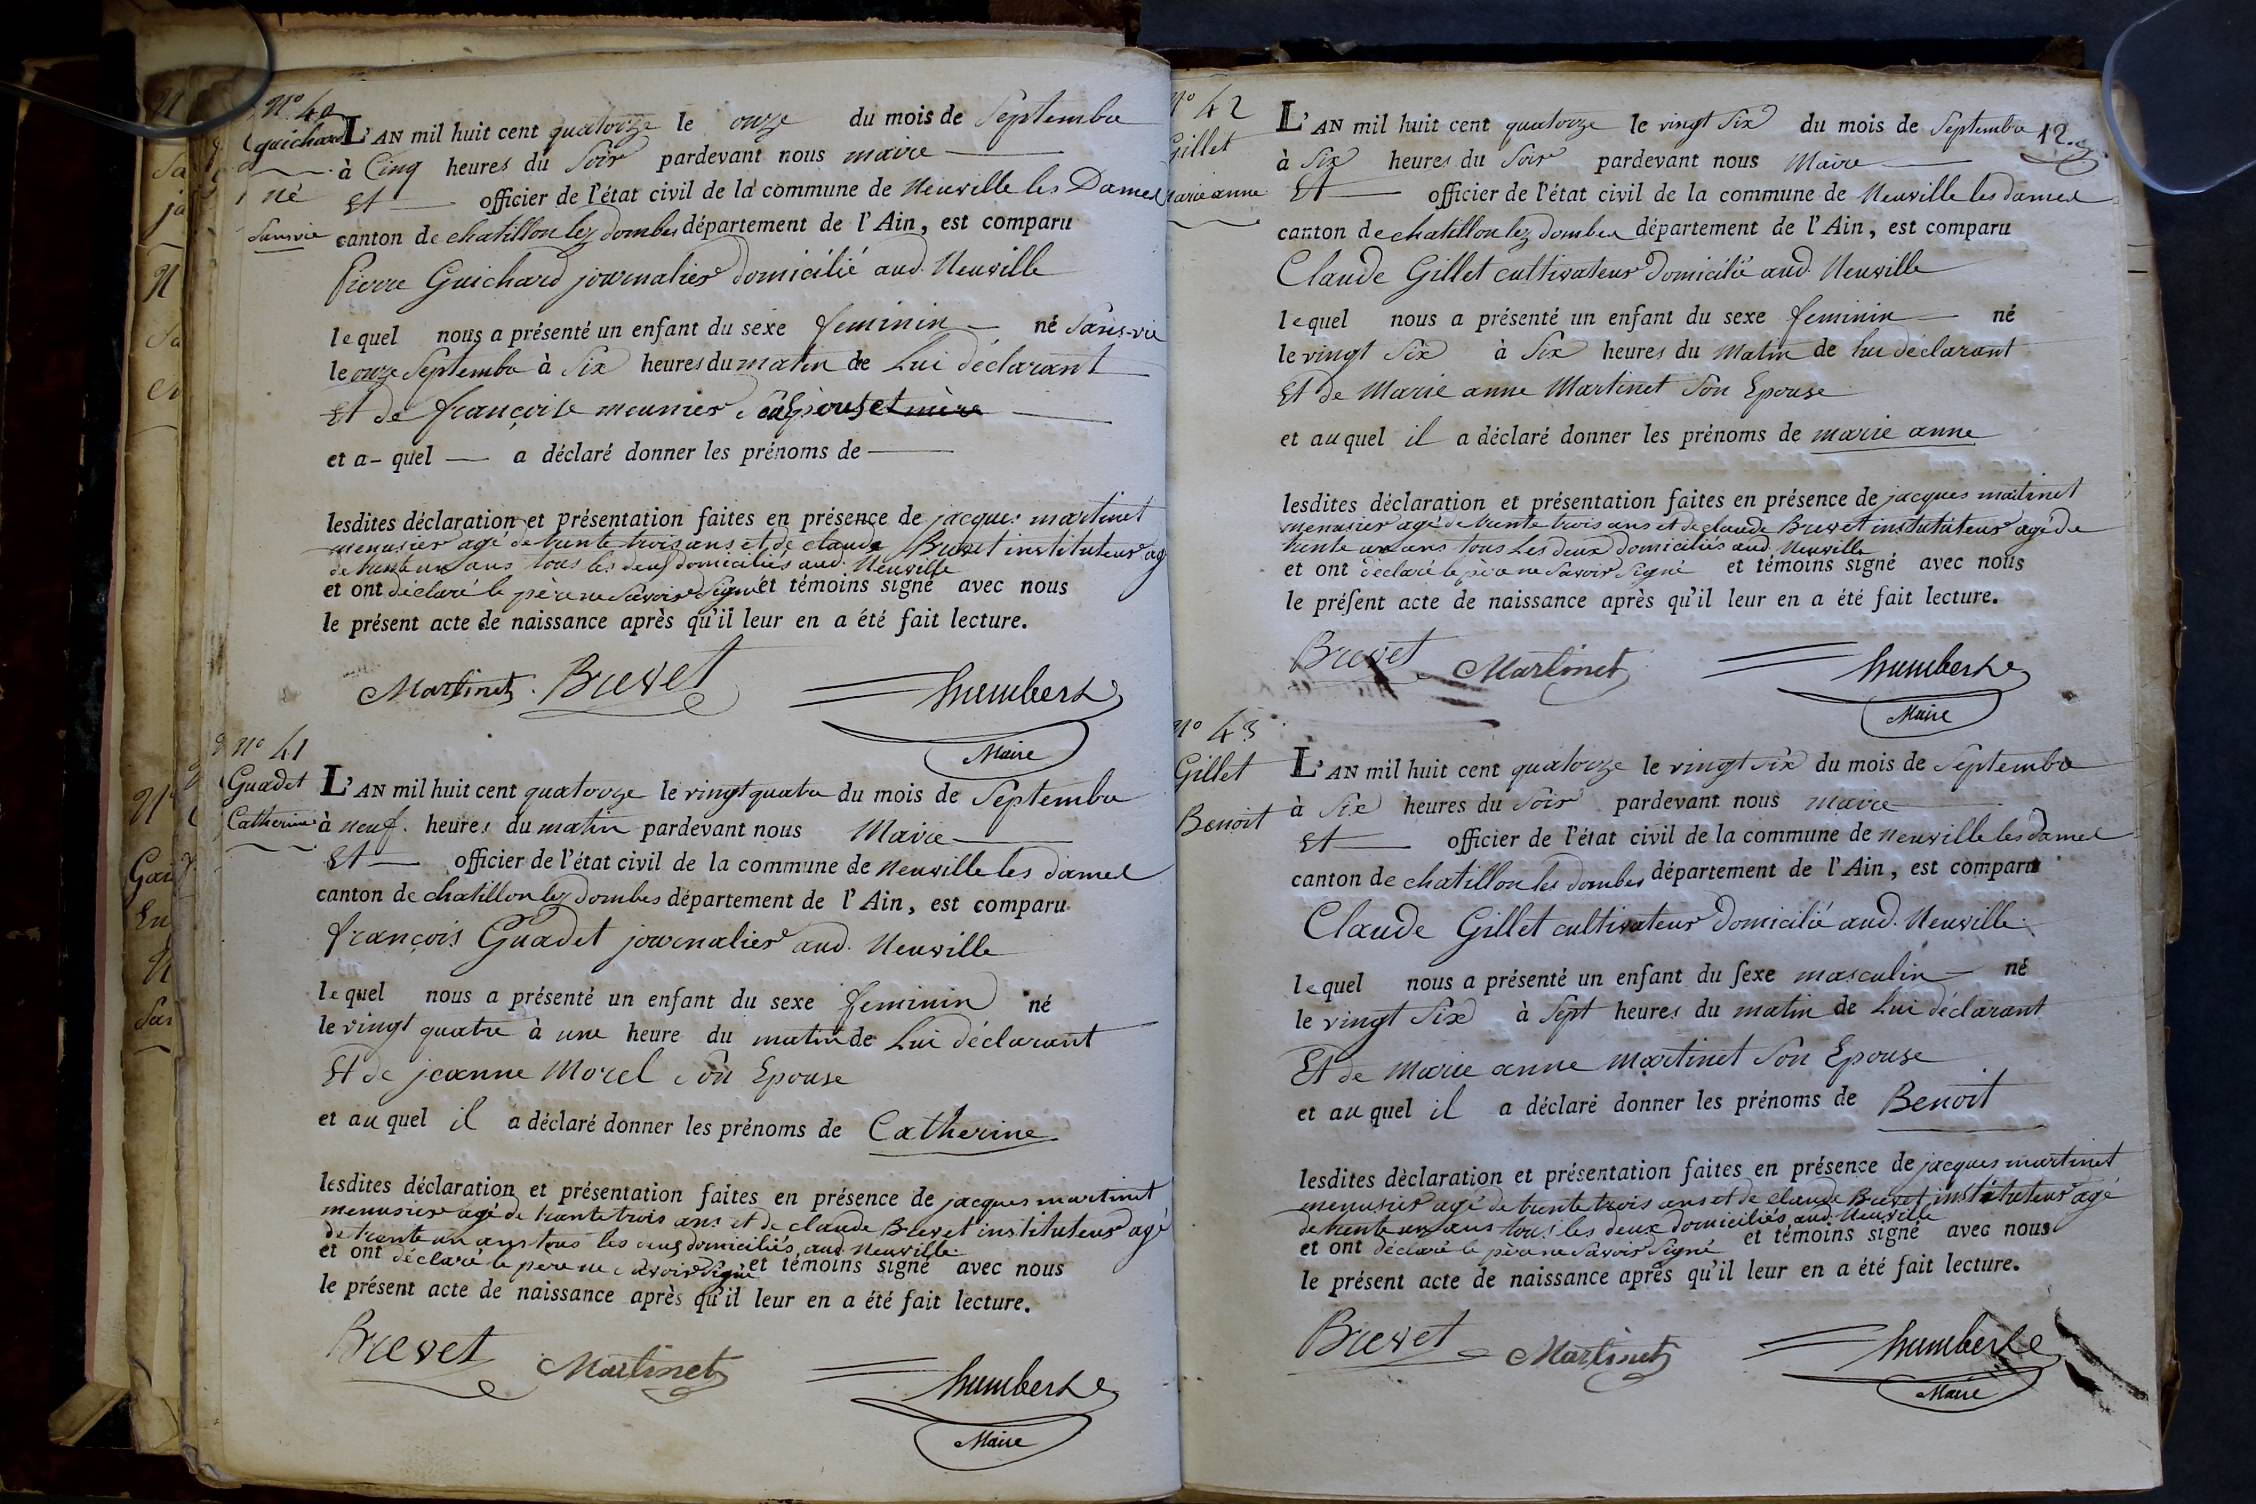 N.º 40
Guichard
né
Sans vie
L'AN mil huit cent quatorze le onze du mois de Septembre
à Cinq heures du Soir pardevant nous maire
Et officier de l'état civil de la commune de Neuville les Dames
canton de chatillon lez dombes département de l'Ain, est comparu
Pierre Guichard journalier domicilié aud. Neuville
lequel nous a présenté un enfant du sexe feminin né Sans-vie
le onze Septembre à Six heures du matin de Lui déclarant
Et de françoise meunier Son Epouse
et a- quel a déclaré donner les prénoms de
lesdites déclaration et présentation faites en présence de jacques martinet
menusier agé de trente trois ans et de claude Brevet instituteur agé
de trente un ans tous les deux domiciliés aud. Neuville
et ont déclaré le père ne Savoir Signé et témoins signé avec nous
le présent acte de naissance après qu'il leur en a été fait lecture.
Martinet Brevet humbert
Maire
Nº 41
Guadet
Catherine
L'AN mil huit cent quatorze le vingt quatre du mois de Septembre
à neuf heures du matin pardevant nous Maire
Et officier de l'état civil de la commune de Neuville les dames
canton de chatillon lez dombes département de l'Ain, est comparu
françois Guadet journalier aud. Neuville
lequel nous a présenté un enfant du sexe feminin né
le vingt quatre à une heure du matin de Lui déclarant
Et de jeanne Morel Son Epouse
et au quel il a déclaré donner les prénoms de Catherine
lesdites déclaration et présentation faites en présence de jacques martinet
menusier agé de trente trois ans et de claude Brevet instituteur agé
de trente un ans tous les deux domiciliés aud. Neuville
et ont déclaré le père ne Savoir Signé et témoins signé avec nous
le présent acte de naissance après qu'il leur en a été fait lecture.
Brevet Martinet humbert
Maire
Nº 42
Gillet
Marie anne
12.
L'AN mil huit cent quatorze le vingt Six du mois de Septembre
à Six heures du Soir pardevant nous Maire
Et officier de l'état civil de la commune de Neuville les dames
canton de chatillon lez dombes département de l'Ain, est comparu
Claude Gillet cultivateur Domicilié aud. Neuville
lequel nous a présenté un enfant du sexe feminin né
le vingt Six à Six heures du Matin de lui déclarant
Et de Marie anne Martinet Son Epouse
et au quel il a déclaré donner les prénoms de marie anne
lesdites déclaration et présentation faites en présence de jacques martinet
menusier agé de trente trois ans et de claude Brevet instututeur agé de
trente un ans tous Les deux domiciliés aud. Neuville
et ont déclaré le père ne Savoir Signé et témoins signé avec nous
le préſent acte de naissance après qu'il leur en a été fait lecture.
Brevet Martinet humbert
Maire
Nº 43
Gillet
Benoit
L'AN mil huit cent quatorze le vingt Six du mois de Septembre
à Six heures du Soir pardevant nous maire
Et officier de l'état civil de la commune de Neuville les Dames
canton de chatillon les dombes département de l'Ain, est comparu
Claude Gillet cultivateur Domicilié aud. Neuville
lequel nous a présenté un enfant du ſexe masculin né
le vingt Six à Sept heures du matin de Lui déclarant
Et de Marie anne Martinet Son Epouse
et au quel il a déclaré donner les prénoms de Benoit
lesdites dèclaration et présentation faites en présence de jacques martinet
menusier agé de trente trois ans et de claude Brevet instituteur agé
de trente un ans tous les deux domiciliés aud. Neuville
et ont déclaré le père ne Savoir Signé et témoins signé avec nous
le présent acte de naissance après qu'il leur en a été fait lecture.
Brevet Martinet humbert
Maire